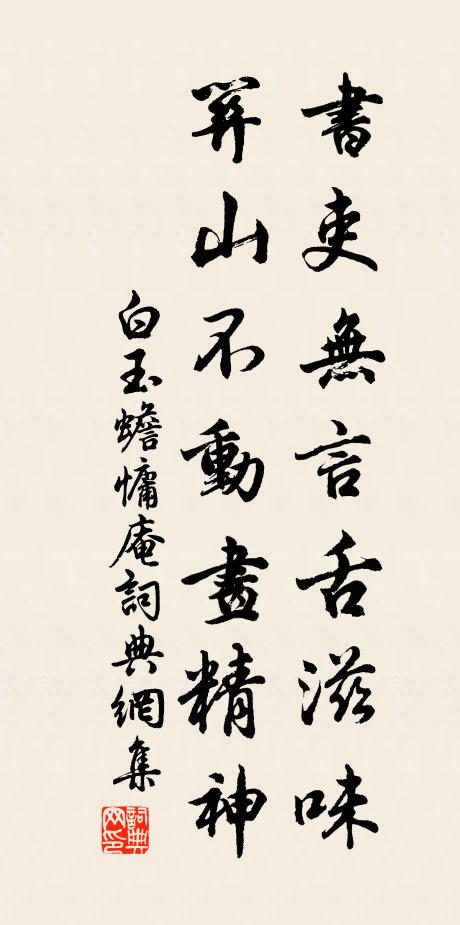 書吏無言舌滋味
山不動畫精神
白玉蟾慵庵詞典網集
詞典網印